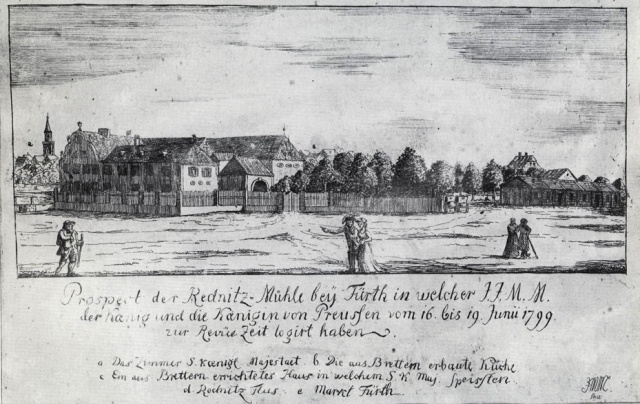 Prospect der Rednitz-Mühle beÿ Fürth in welcher J.J.M.M.
der Kœnig und die Kœnigen von Preussen vom 16. bis 19. Junii 1799.
zur Revüe Zeit logirt haben
a Das Zimmer S. Kœnigl. Majestaet b. Die aus Brettern erbaute Küche
c Ein aus Brettern errichtetes Haus in welchem S. K. Maj. Speissten
d. Rednitz Flus. e Marckt Fürth